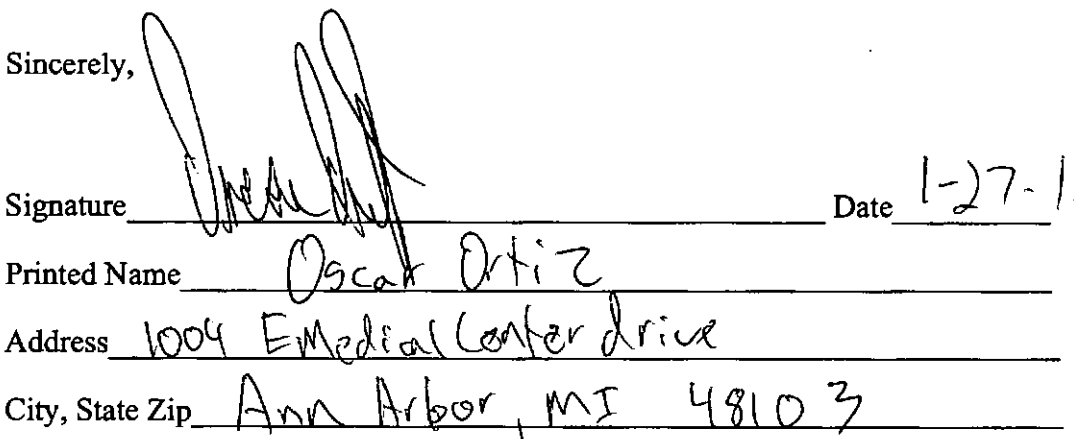 Sincerely,
Signature Date 1-27-1
Printed Name Oscar Ortiz
Address 1004 E Medical Center drive
City, State Zip Ann Arbor, MI 48103